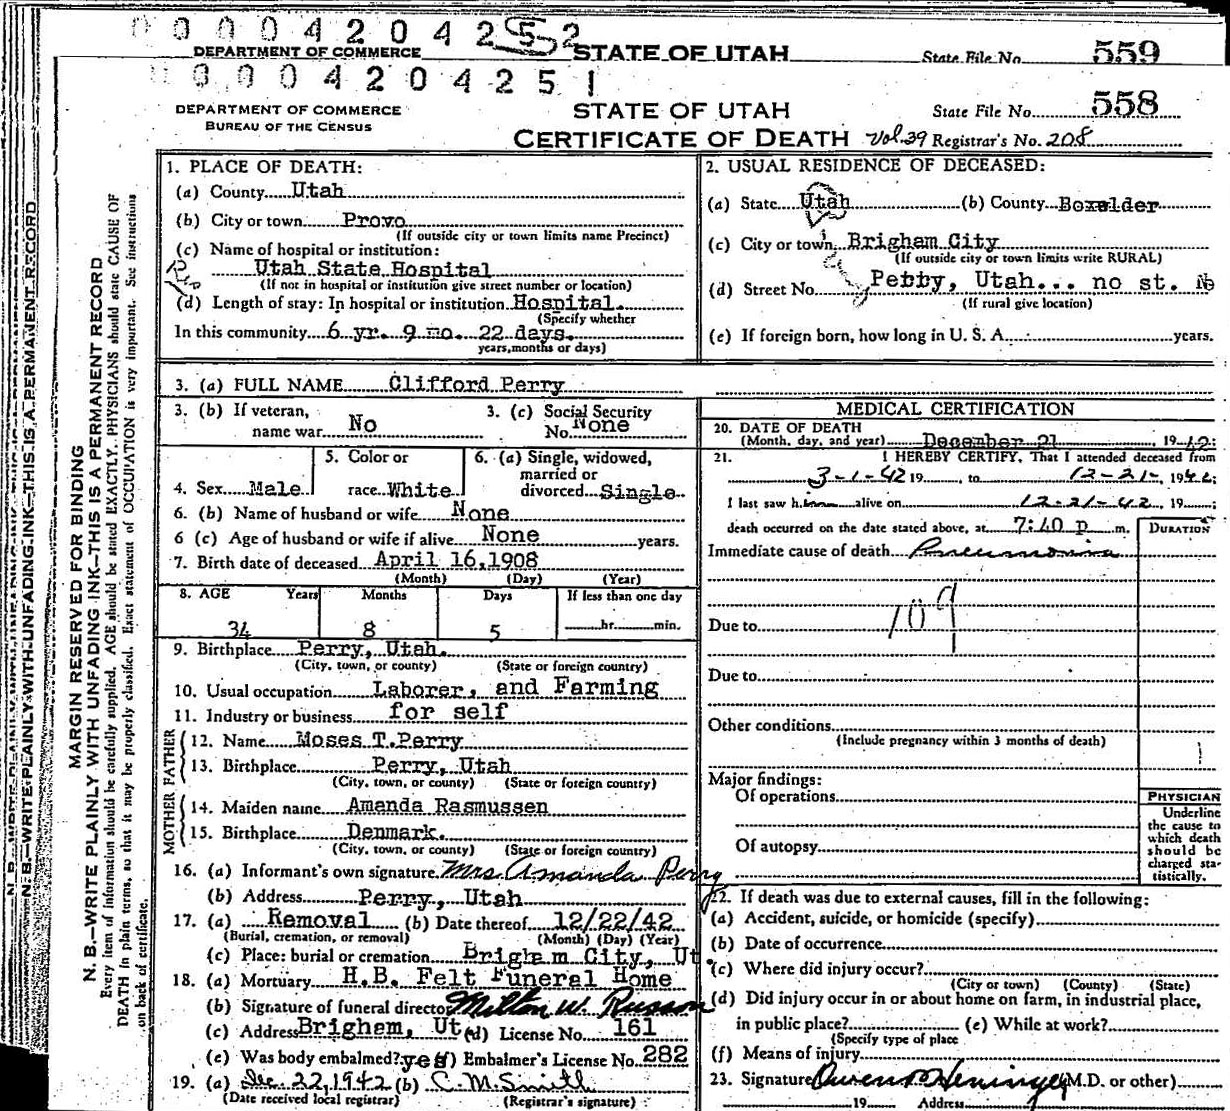 0 0 0 4 2 0 4 2 5 2
DEPARTMENT OF COMMERCE
STATE OF UTAH
State File No. 559
0 0 0 4 2 0 4 2 5 1
DEPARTMENT OF COMMERCE
BUREAU OF THE CENSUS
STATE OF UTAH
State File No. 558
CERTIFICATE OF DEATH Vol. 39 Registrar's No. 208
MARGIN RESERVED FOR BINDING
N. B.—WRITE PLAINLY WITH UNFADING INK—THIS IS A PERMANENT RECORD
Every item of information should be carefully supplied. AGE should be stated EXACTLY. PHYSICIANS should state CAUSE OF
DEATH in plain terms, so that it may be properly classified. Exact statement of OCCUPATION is very important. See instructions
on back of certificate.
N. B.—WRITE PLAINLY WITH UNFADING INK—THIS IS A PERMANENT RECORD
1. PLACE OF DEATH:
(a) County Utah
(b) City or town Provo
(If outside city or town limits name Precinct)
(c) Name of hospital or institution:
Utah State Hospital
(If not in hospital or institution give street number or location)
(d) Length of stay: In hospital or institution Hospital.
(Specify whether
In this community 6 yr. 9 mo. 22 days.
years, months or days)
2. USUAL RESIDENCE OF DECEASED:
(a) State Utah (b) County Boxelder
(c) City or town Brigham City
(If outside city or town limits write RURAL)
(d) Street No. Perry, Utah... no st. No
(If rural give location)
(e) If foreign born, how long in U. S. A. years.
3. (a) FULL NAME Clifford Perry
3. (b) If veteran, name war No
3. (c) Social Security No. None
4. Sex Male
5. Color or race White
6. (a) Single, widowed, married or divorced Single
6. (b) Name of husband or wife None
6 (c) Age of husband or wife if alive None years.
7. Birth date of deceased April 16, 1908
(Month) (Day) (Year)
8. AGE Years Months Days If less than one day
34 8 5 hr. min.
9. Birthplace Perry, Utah.
(City, town, or county) (State or foreign country)
10. Usual occupation Laborer, and Farming
11. Industry or business for self
FATHER
12. Name Moses T. Perry
13. Birthplace Perry, Utah
(City, town, or county) (State or foreign country)
MOTHER
14. Maiden name Amanda Rasmussen
15. Birthplace Denmark.
(City, town, or county) (State or foreign country)
16. (a) Informant's own signature Mrs Amanda Perry
(b) Address Perry, Utah
17. (a) Removal (b) Date thereof 12/22/42
(Burial, cremation, or removal) (Month) (Day) (Year)
(c) Place: burial or cremation Brigham City, Ut.
18. (a) Mortuary H.B. Felt Funeral Home
(b) Signature of funeral director Milton W. Russon
(c) Address Brighem, Ut (d) License No. 161
(e) Was body embalmed? yes (f) Embalmer's License No. 282
19. (a) Dec. 22, 1942 (b) C. M. Smith
(Date received local registrar) (Registrar's signature)
MEDICAL CERTIFICATION
20. DATE OF DEATH
(Month, day, and year) December 21, 1942;
21. I HEREBY CERTIFY, That I attended deceased from
3-1-42 19 , to 12-21-, 1942;
I last saw him alive on 12-21-42, 19 ;
death occurred on the date stated above, at 7:40 p m. DURATION
Immediate cause of death Pneumonia
109
Due to
Due to
Other conditions
(Include pregnancy within 3 months of death)
Major findings:
Of operations
Of autopsy
PHYSICIAN
Underline
the cause to
which death
should be
charged sta-
tistically.
22. If death was due to external causes, fill in the following:
(a) Accident, suicide, or homicide (specify)
(b) Date of occurrence
(c) Where did injury occur?
(City or town) (County) (State)
(d) Did injury occur in or about home on farm, in industrial place,
in public place? (e) While at work?
(Specify type of place
(f) Means of injury
23. Signature Owen P. Heninger (M.D. or other)
19 Address